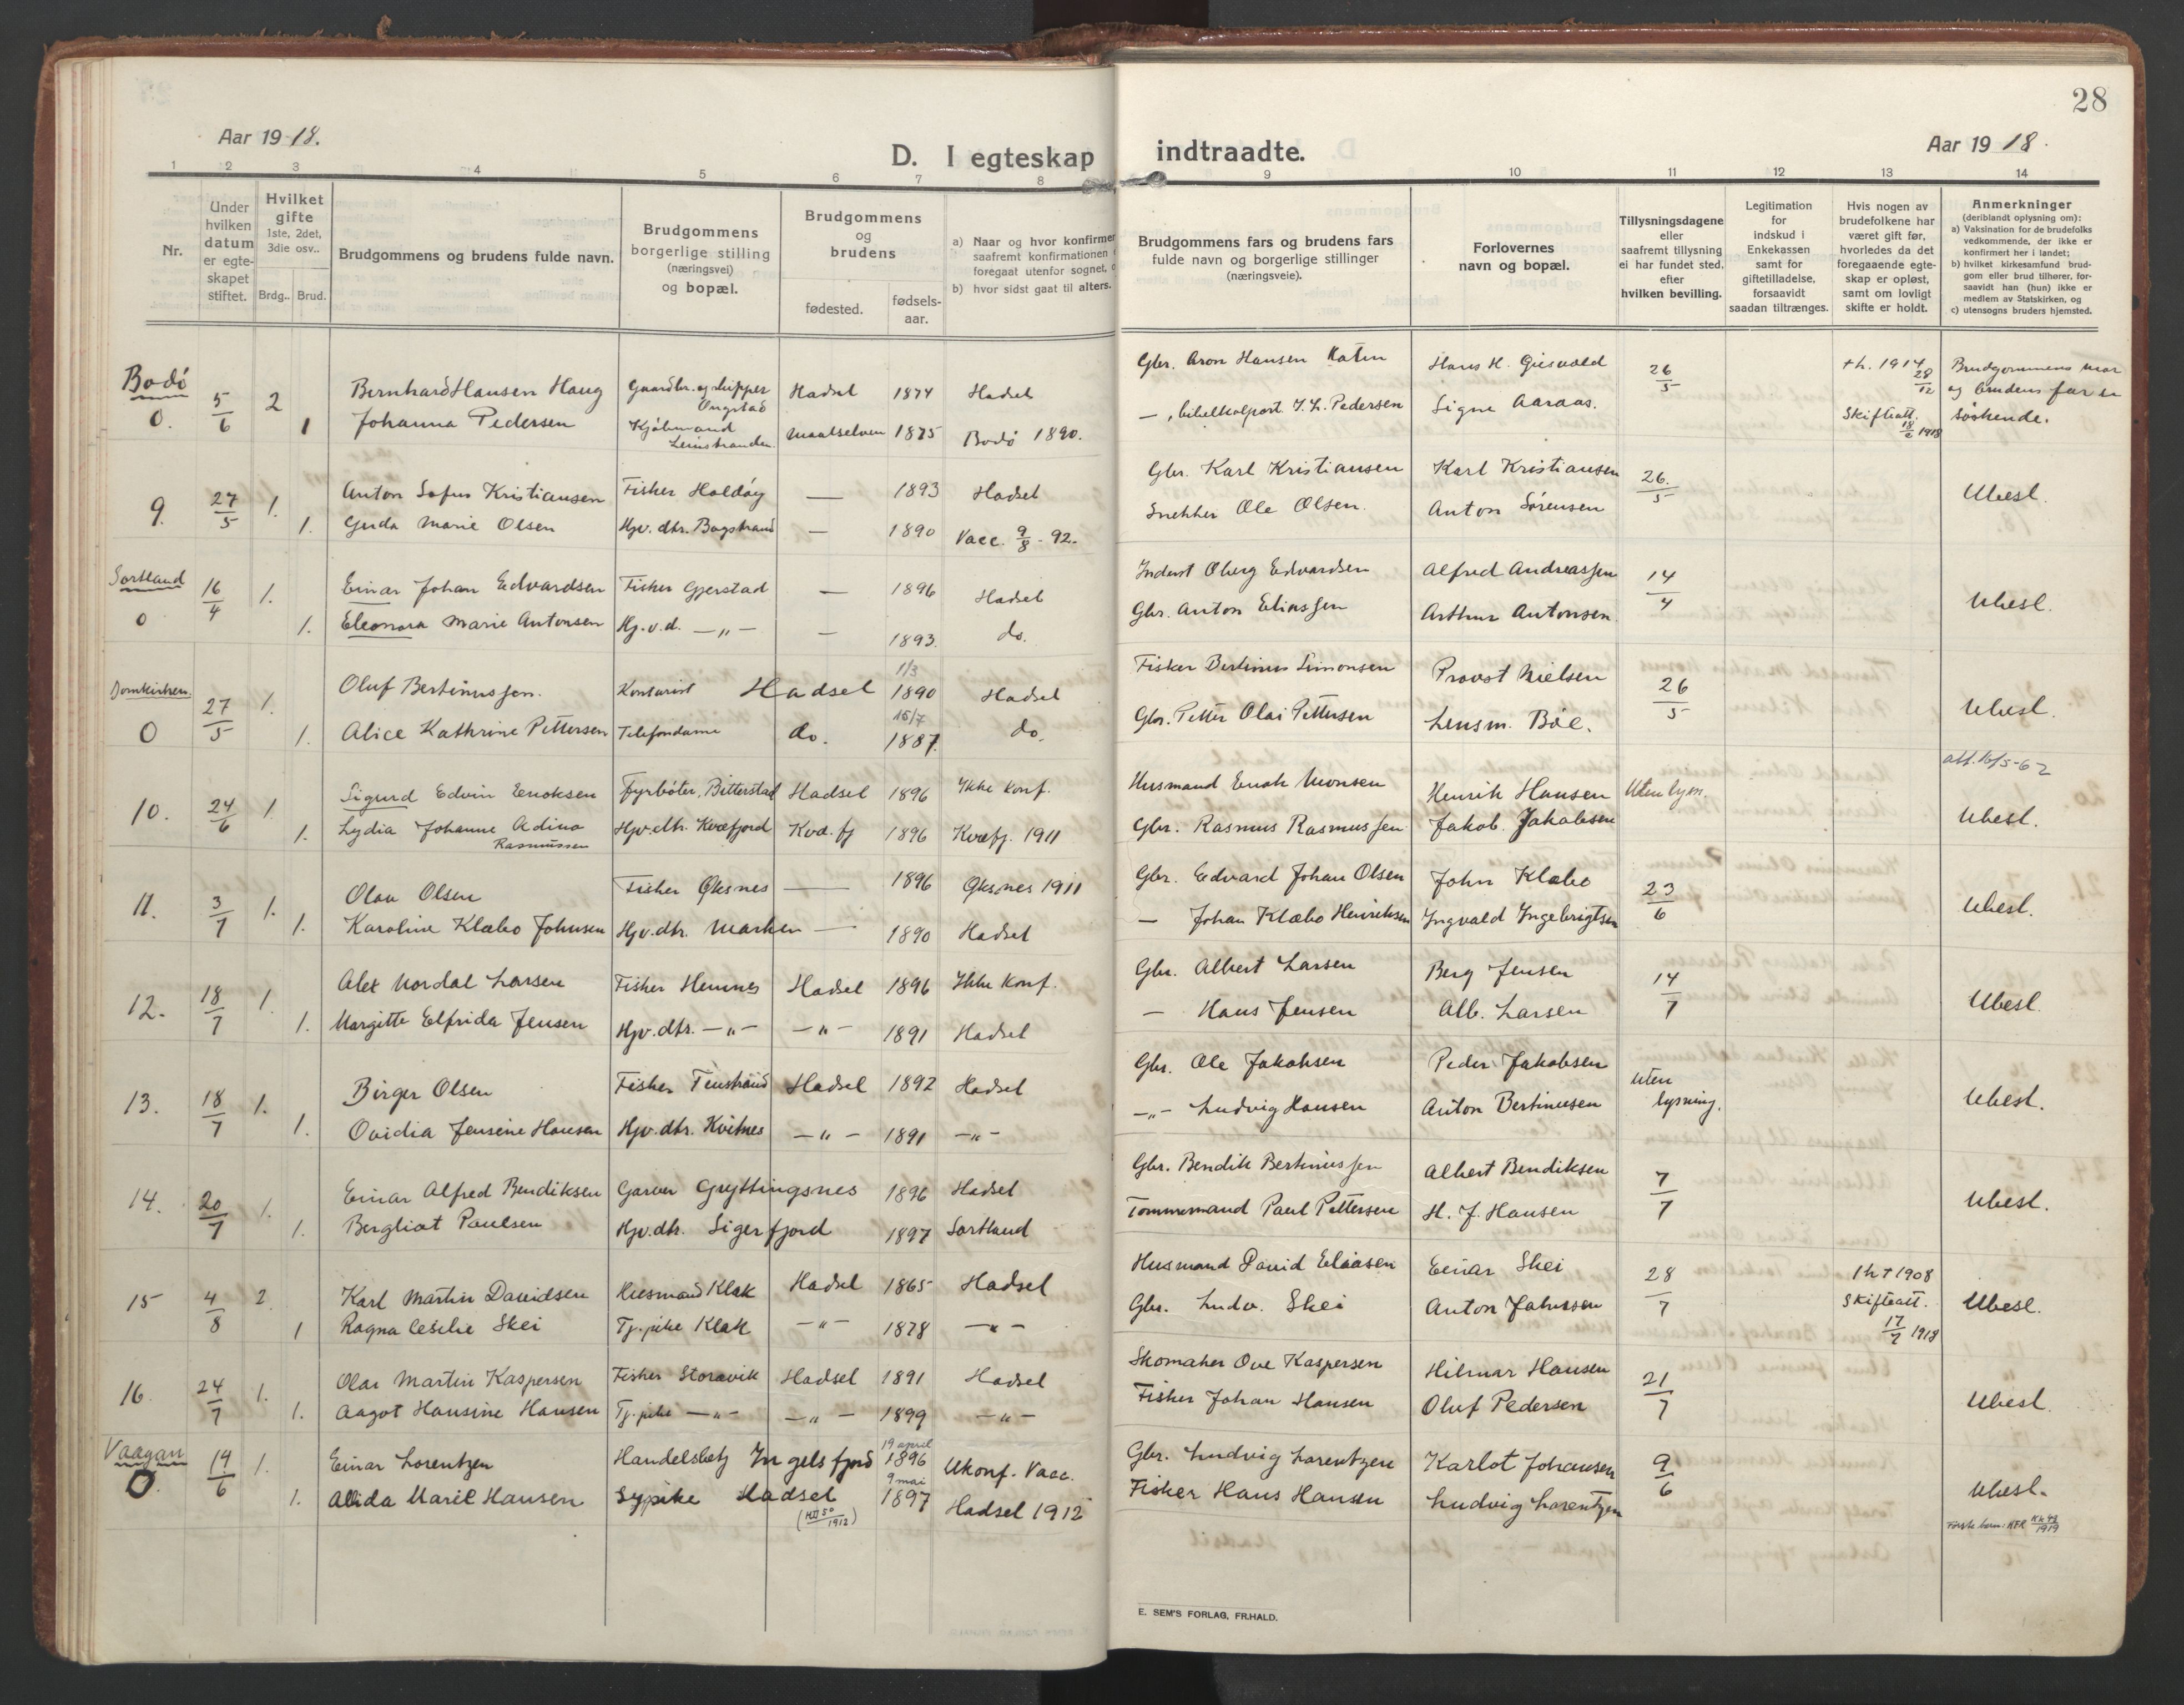 28
Aar 1918.
D. I egteskap indtraadte.
Aar 1918.
1 2 3 4 5 6 7 8 9 10 11 12 13 14
Nr.
Under hvilken datum er egteskapet stiftet.
Hvilket gifte 1ste, 2det, 3die osv..
Brdg.. Brud.
Brudgommens og brudens fulde navn.
Brudgommens borgerlige stilling (næringsvei) og bopæl.
Brudgommens og brudens
fødested. fødsels-aar.
a) Naar og hvor konfirmer
saafremt konfirmationen
foregaat utenfor sognet,
b) hvor sidst gaat til alters.
Brudgommens fars og brudens fars
fulde navn og borgerlige stillinger
(næringsveie).
Forlovernes
navn og bopæl.
Tillysningsdagene
eller
saafremt tillysning
ei har fundet sted.
efter
hvilken bevilling.
Legitimation
for
indskud i
Enkekassen
samt for
giftetilladelse,
forsaavidt
saadan tiltrænges.
Hvis nogen av
brudefolkene har
været gift før,
hvorledes da det
foregaaende egte-
skap er opløst,
samt om lovligt
skifte er holdt.
Anmerkninger
(deriblandt oplysning om):
a) Vaksination for de brudefolks
vedkommende, der ikke er
konfirmert her i landet;
b) hvilket kirkesamfund brud-
gom eller brud tilhører, for-
saavidt han (hun) ikke er
medlem av Statskirken, og
c) utensogns bruders hjemsted.
Bodö 0. 5/6 2 Bernhard Hansen Haug Gaardbr. og skipper Ongstad Hadsel 1874 Hadsel Gbr. Aron Hansen Hans H. 26/5 † h. 1914 28/12 Brudgommens mor
1 Johanna Pedersen Kjöbmand Maalselven 1875 Bodö 1890. —, bibelkolport. J. L. Pedersen Signe Aaraas. Skifteatt. 18/2 1918 og brudens far er söskende.
9. 27/5 1. Anton Sofus Kristiansen Fisker Haldöy — 1893 Hadsel Gbr. Karl Kristiansen Karl Kristiansen 26./5 Ubesl.
1. Guda Marie Olsen Hjv. dtr. Bogstrand — 1890 Vacc. 9/8 - 92. Snekker Ole Olsen. Anton Sörensen
Sortland 0 16/4 1. Einar Johan Edvardsen Fisker Gjerstad — 1896 Hadsel Inderst Oberg Edvardsen Alfred Andreassen 14/4 Ubesl.
1. Eleonora Marie Antonsen Hj.v.d. —"— — 1893. do. Gbr. Anton Eliassen Arthur Antonsen.
Domkirken 0 27/5 1. Oluf Bertinussen. Kontorist Hadsel 1/3 1890 Hadsel Fisker Bertinus Simonsen Provst Nielsen 26/5 Ubesl.
1. Alice Kathrine Pettersen Telefondame do. 15/7 1887. do. Gbr. Petter Olai Pettersen Lensm. Böe.
att. 16/5-62
10. 24/6 1. Sigurd Edvin Enoksen Fyrböter, Bitterstad Hadsel 1896 Ikke konf. Husmand Enok Monsen Henrik Hansen Uten lysn. Ubesl.
1. Lydia Johanne Adina Rasmussen Hjv. dtr. Kvæfjord Kvæ.fj 1896 Kvæfj. 1911 Gbr. Rasmus Rasmussen Jakob Jakobsen
11. 3/7 1. Olav Olsen Fisker Øksnes — 1896 Øksnes 1911 Gbr. Edvard Johan Olsen John Klæbo 23/6 Ubesl.
1. Karoline Klæbo Johnsen Hjv. dtr. Marken — 1890 Hadsel — Johan Klæbo Henriksen Ingvald Ingebrigtsen
12. 18/7 1. Alex Nordal Larsen Fisker Hennes Hadsel 1896 Ikke konf. Gbr. Albert Larsen Berg Jensen 14/7 Ubesl.
1. Margitte Elfrida Jensen Hjv. dtr. —"— —"— 1891 Hadsel — Hans Jensen Alb. Larsen
13. 18/7 1. Birger Olsen Fisker Hadsel 1892 Hadsel Gbr. Ole Jakobsen Peder Jakobsen Uten lysning. Ubesl.
1. Ovidia Jensine Hansen Hjv. dtr. Kvitnes —"— 1891 —"— —"— Ludvig Hansen Anton Bertinusen
14. 20/7 1. Einar Alfred Bendiksen Garver Gryttingsnes 1896 Hadsel Gbr. Bendik Bertinussen Albert Bendiksen 7/7 Ubesl.
1. Bergliot Paulsen Hjv. dtr. Sigerfjord 1897 Sortland Tommermand Paul Pettersen H. J. Hansen
15 4/8 2. Karl Martin Davidsen Husmand Klak Hadsel 1865 Hadsel Husmand David Eliasen Einar Skei 28/7 1 h † 1908 Ubesl.
1 Ragna Cecilie Skei Tj.pike Klak —"— 1878 —"— Gbr. Ludv. Skei Anton Johnsen Skifteatt. 17/7 1918
16. 24/7 1. Olai Martin Kaspersen Fisker Storavik Hadsel 1891 Hadsel Skomaker Ove Kaspersen Hilmar Hansen 21/7 Ubesl.
1. Aagot Hansine Hansen Tj.pike —"— —"— 1899 —"— Fisker Johan Hansen Oluf Pedersen
Vaagan 0. 14/6 1. Einar Lorentzen Handelsbetj Ingelsfjord 19 april 1896 Ukonf. Vacc. Gbr. Ludvig Lorentzen Karlot Johansen 9/6 Ubesl.
1. Alida Maril Hansen Sypike Hadsel 9 mai 1897 Hadsel 1912 Fisker Hans Hansen Ludvig Lorentzen
E. SEM'S FORLAG, FR.HALD.